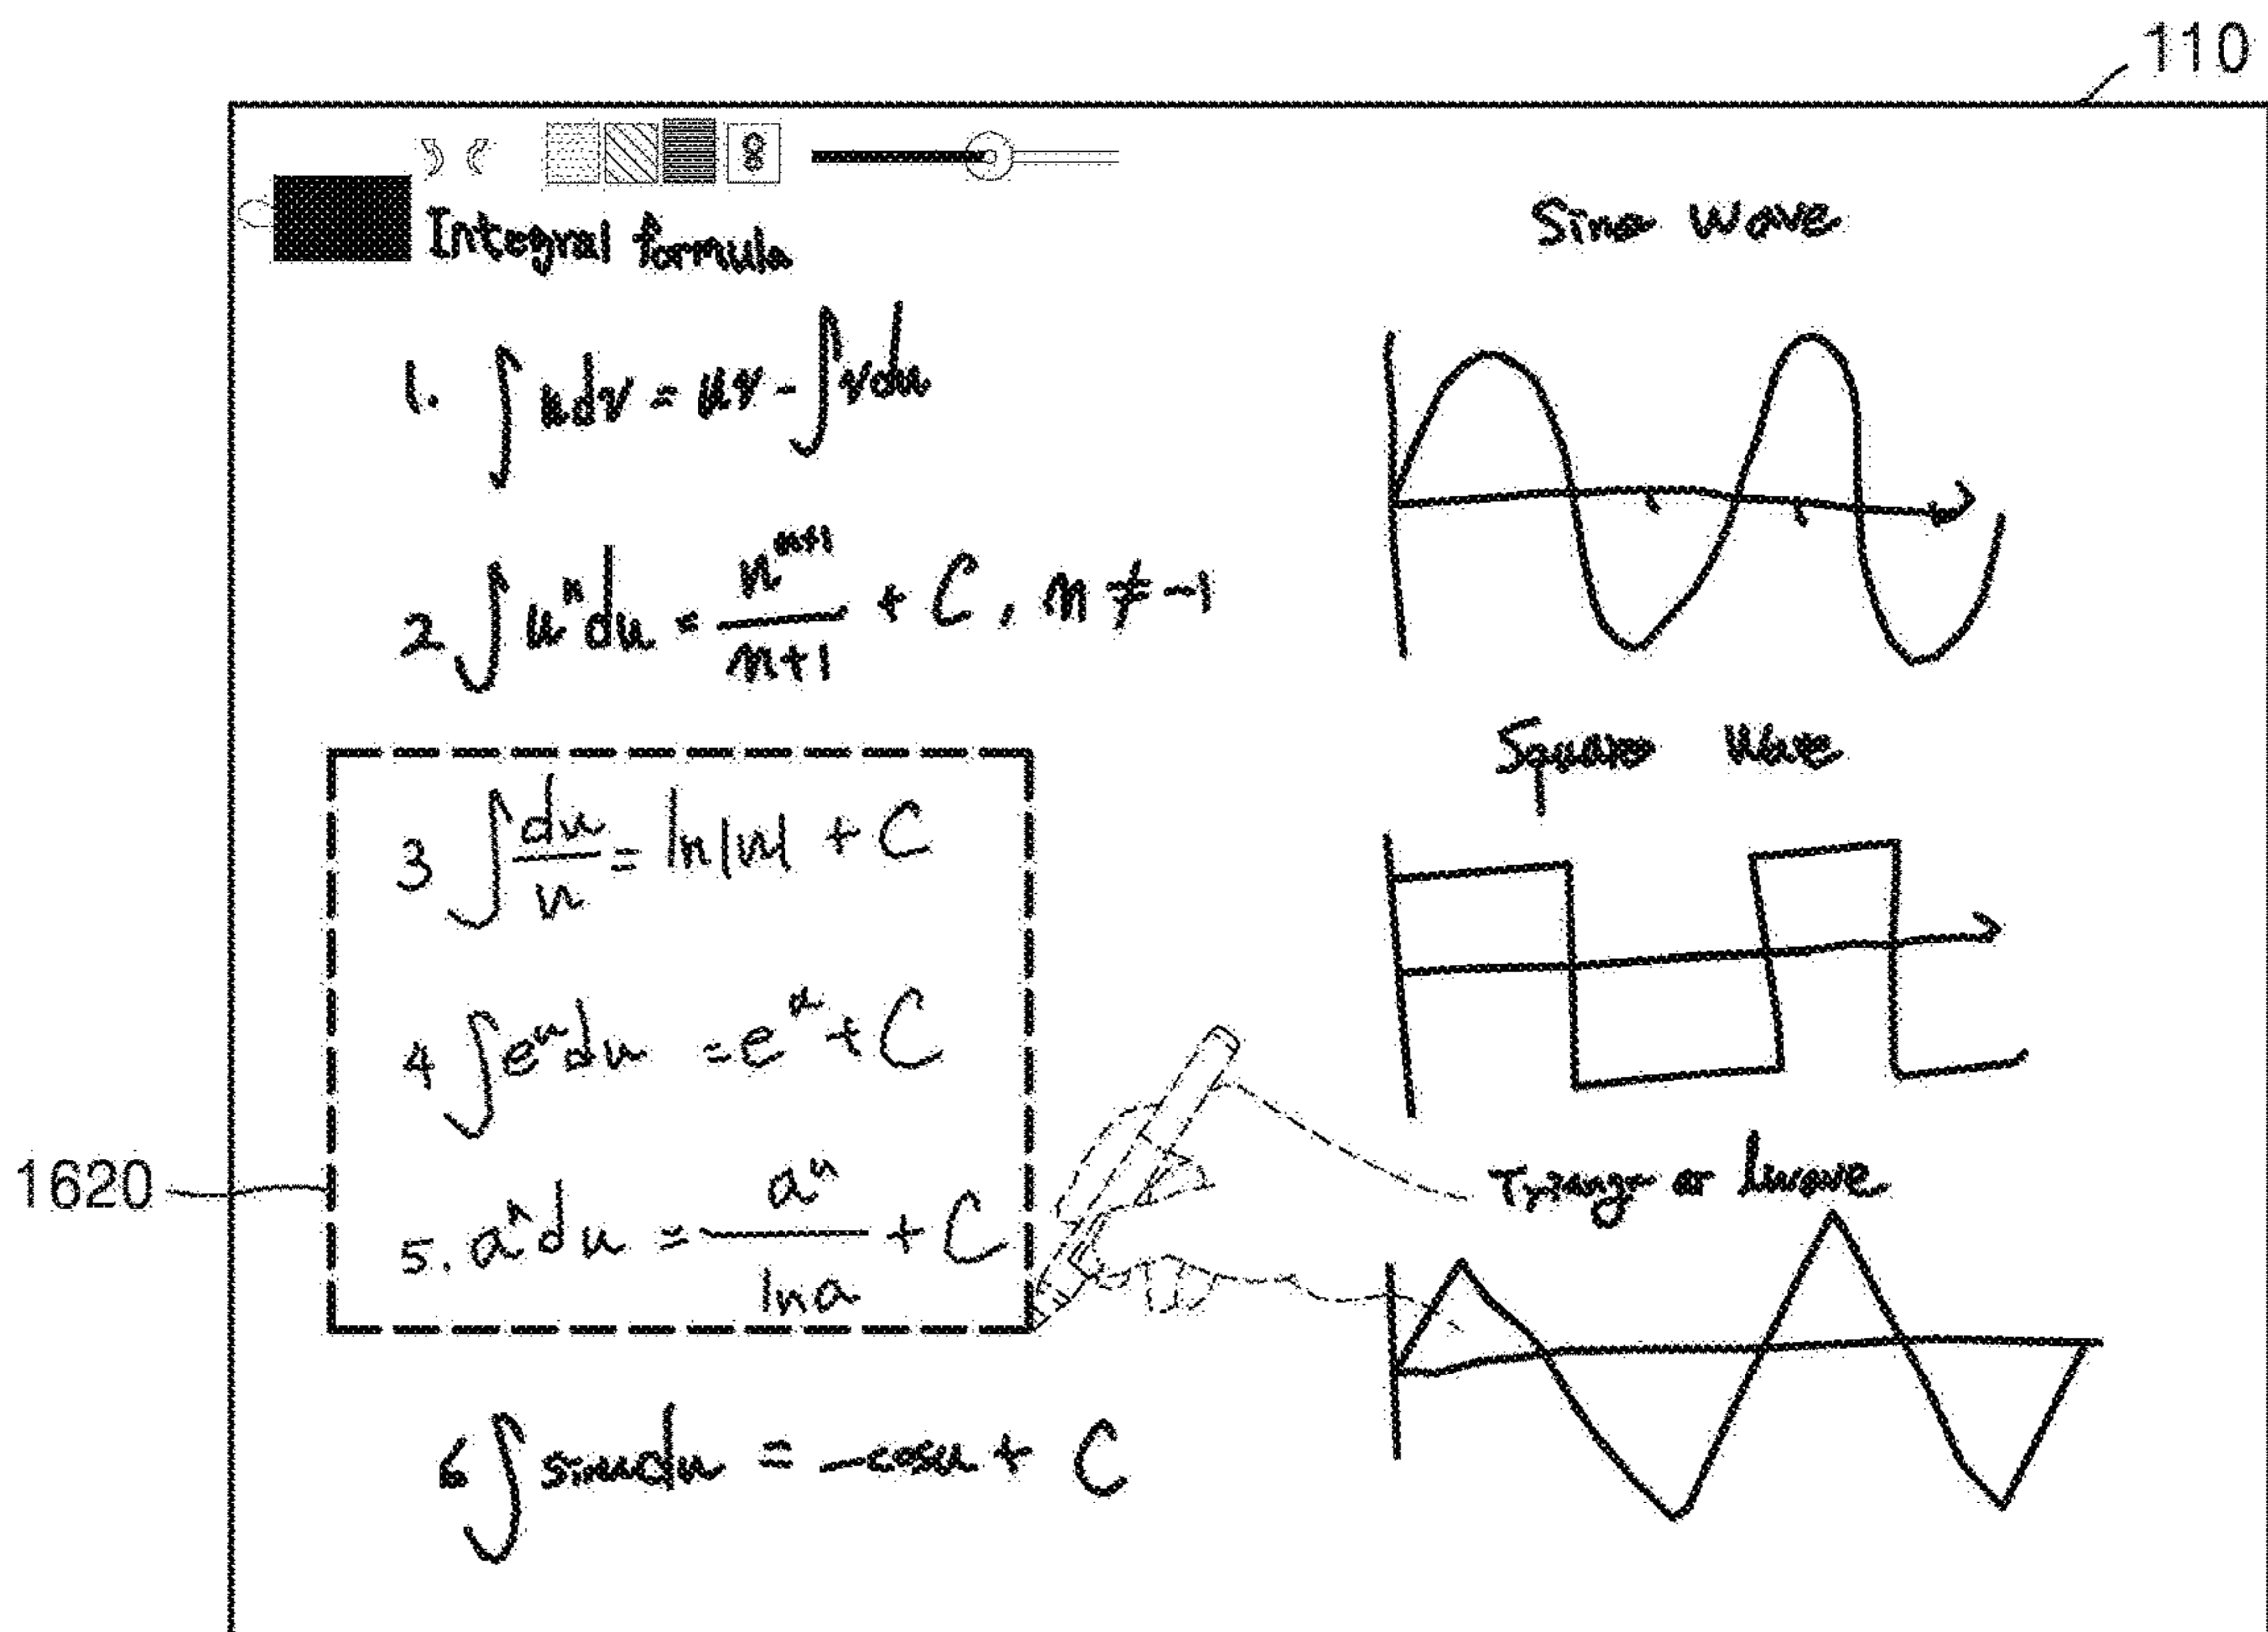 110
Integral formula
1. ∫udv = uv - ∫vdu
2 ∫uⁿdu = n^(n+1)/(n+1) + C, n ≠ -1
3 ∫du/u = ln|u| + C
4 ∫eᵘdu = eᵘ + C
1620
5. aⁿdu = aᵘ/lna + C
6 ∫sinudu = -cosu + C
Sine wave
Square wave
Triang or lwave